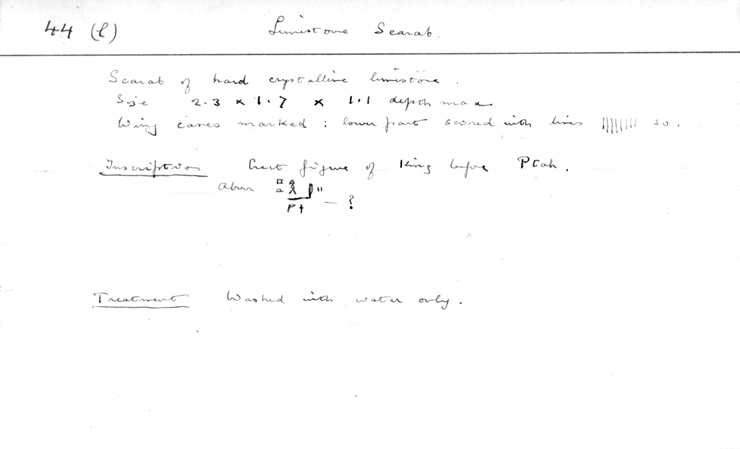 44 (l) Limestone Scarab.
Scarab of hard crystalline limestone.
Size 2.3 x 1.7 x 1.1 depth max
Wing cases marked: lower part scored with lines |||||||| so.
Inscription Erect figure of King before Ptah.
Above
Pt — ?
Treatment Washed with water only.